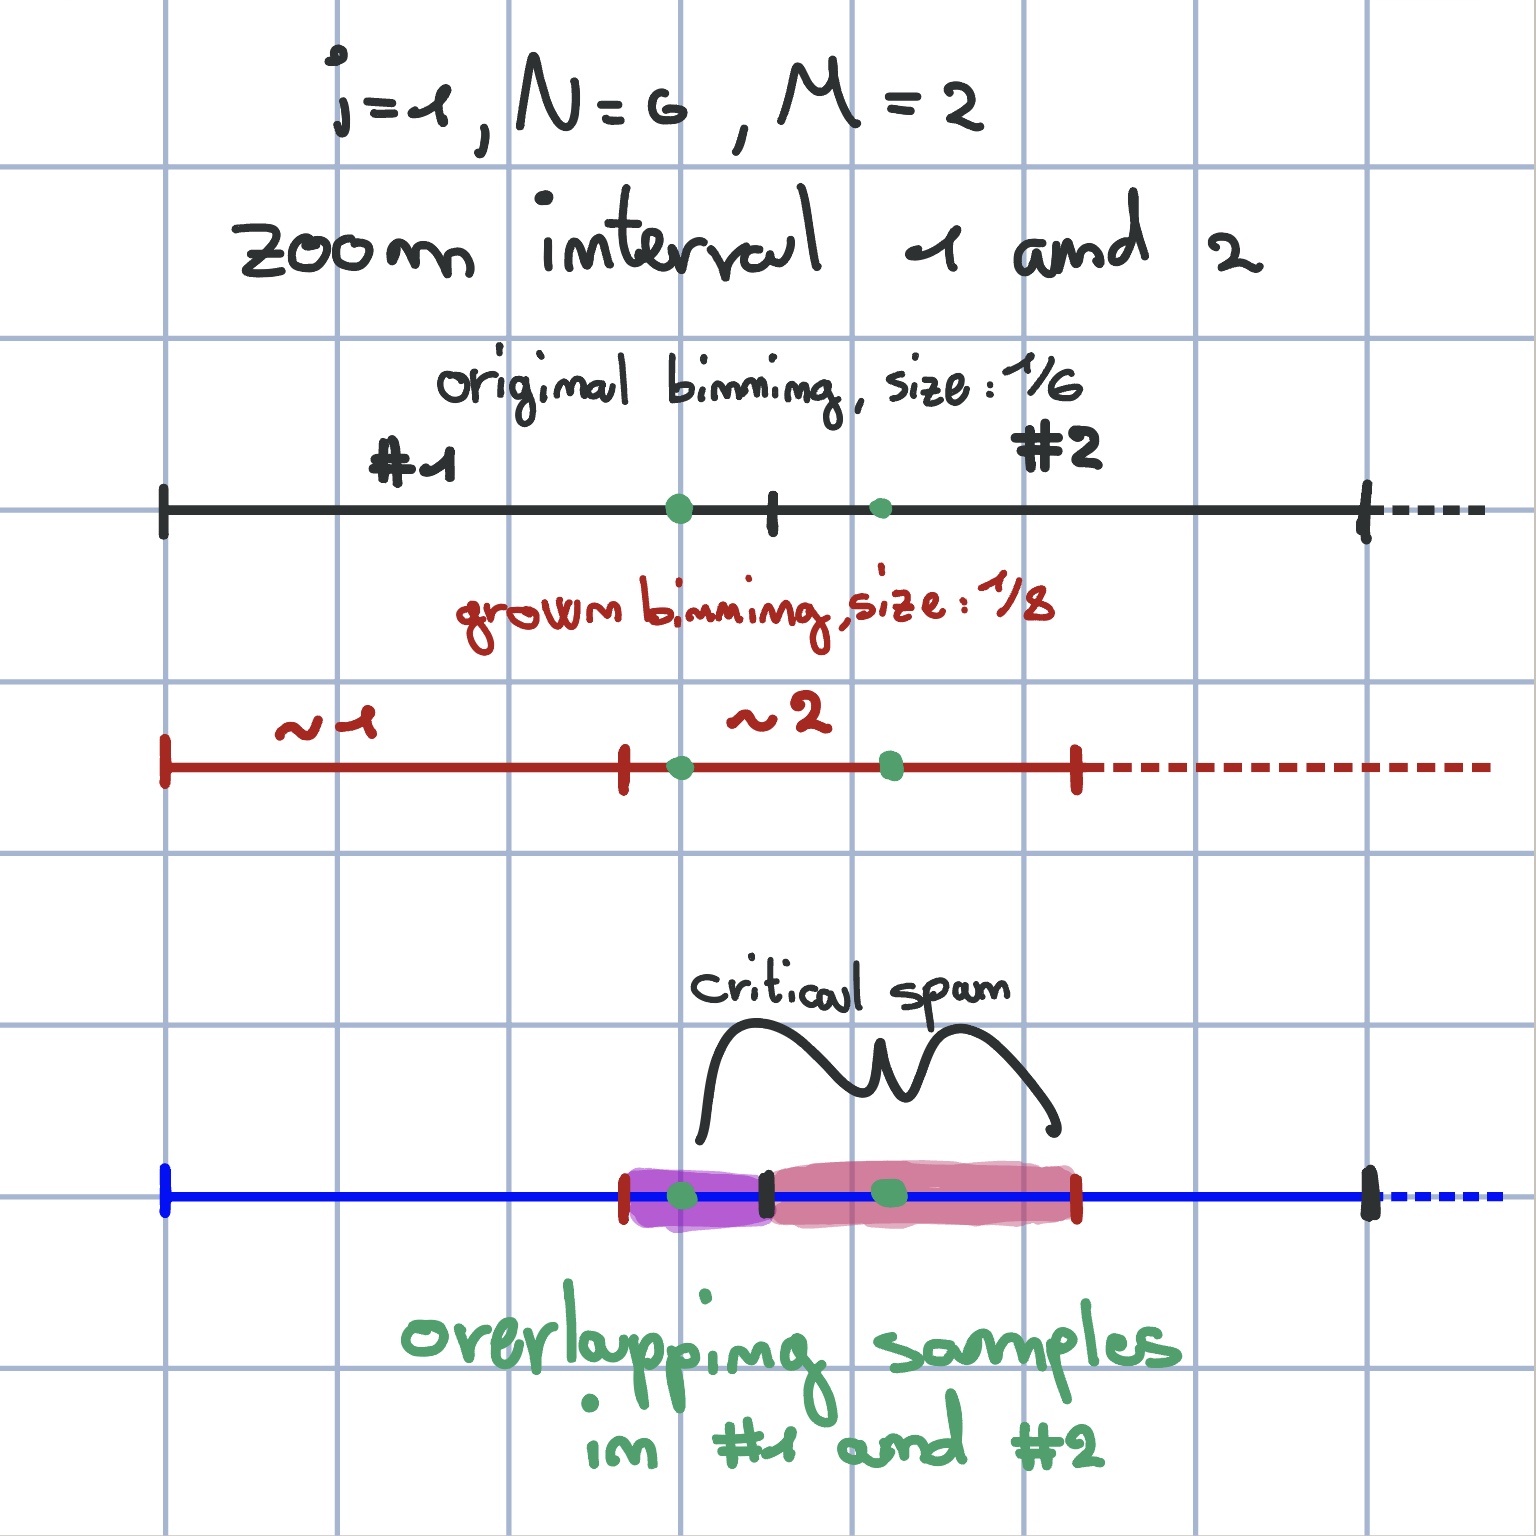 j=1, N=6, M=2
zoom interval 1 and 2
original binning, size: 1/6
#1 #2
grown binning, size: 1/8
~1 ~2
critical span
overlapping samples
in #1 and #2